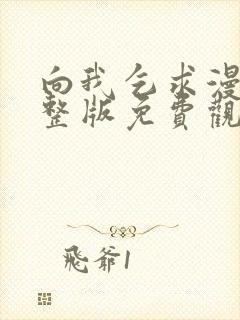 向我乞求漫
整版免費觀
飛爺1